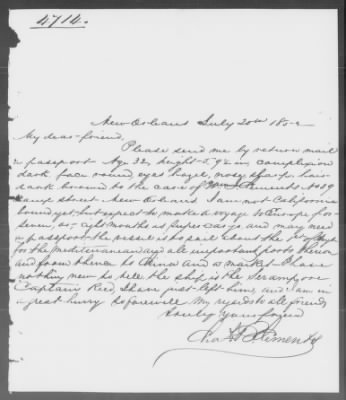 4714.
New Orleans July 20th 185-2
My dear friend,
Please send me by return mail
a passport - Age 32, height 5. 9½ in complexion
dark face round, eyes hazel, nose sharp hair
dark brown to the care of Wm Clements No 39
Camp street New Orleans I am not California
bound yet, but expect to make a voyage to Europe for
seven or eight months as Supercargo and may need
a passport - the vessel is to sail about the 1st of
for the Mediterranean and all important ports
and from thence to China and a market - I have
nothing new to tell the ship is the Serampore
Captain Reed, I have just left him, and I am in
a great hurry so farewell My regards to all friends
truly yours
Clements